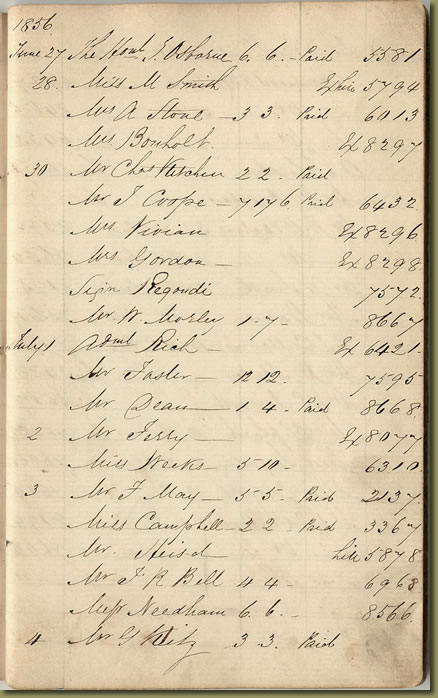 1856
June 27 The Honl G. Osborne 6. 6. - Paid 5581
28. Miss M Smith Ex hire 5794
Mrs A Stone - 3 3. Paid 6013
Mrs Bonholt. Ex 8297
30 Mr Chas Kitchen 2 2. Paid
Mr J Coope - 7 17 6 Paid 6432
Mrs Vivian Ex 8296
Mrs. Gordon - Ex 8298
Sigr Regondi 7572
Mr. W Morley 1 - 7 - 8667
July 1 Adml Rich - Ex 6421 -
Mr Foster - 12 12. 7595
Mr Dean - 1 4 - Paid 8668
2 Mr Terry - Ex 8077
Miss Weeks - 5 10 - 6310
3 Mr F May - 5 5. Paid 2137
Miss Campbell - 2 2 Paid 3367
Mr. 5878
Mr J R Bell 4 4 - 6968
Messr Needham 6. 6. - 8566
4 Mr G 3 3. Paid